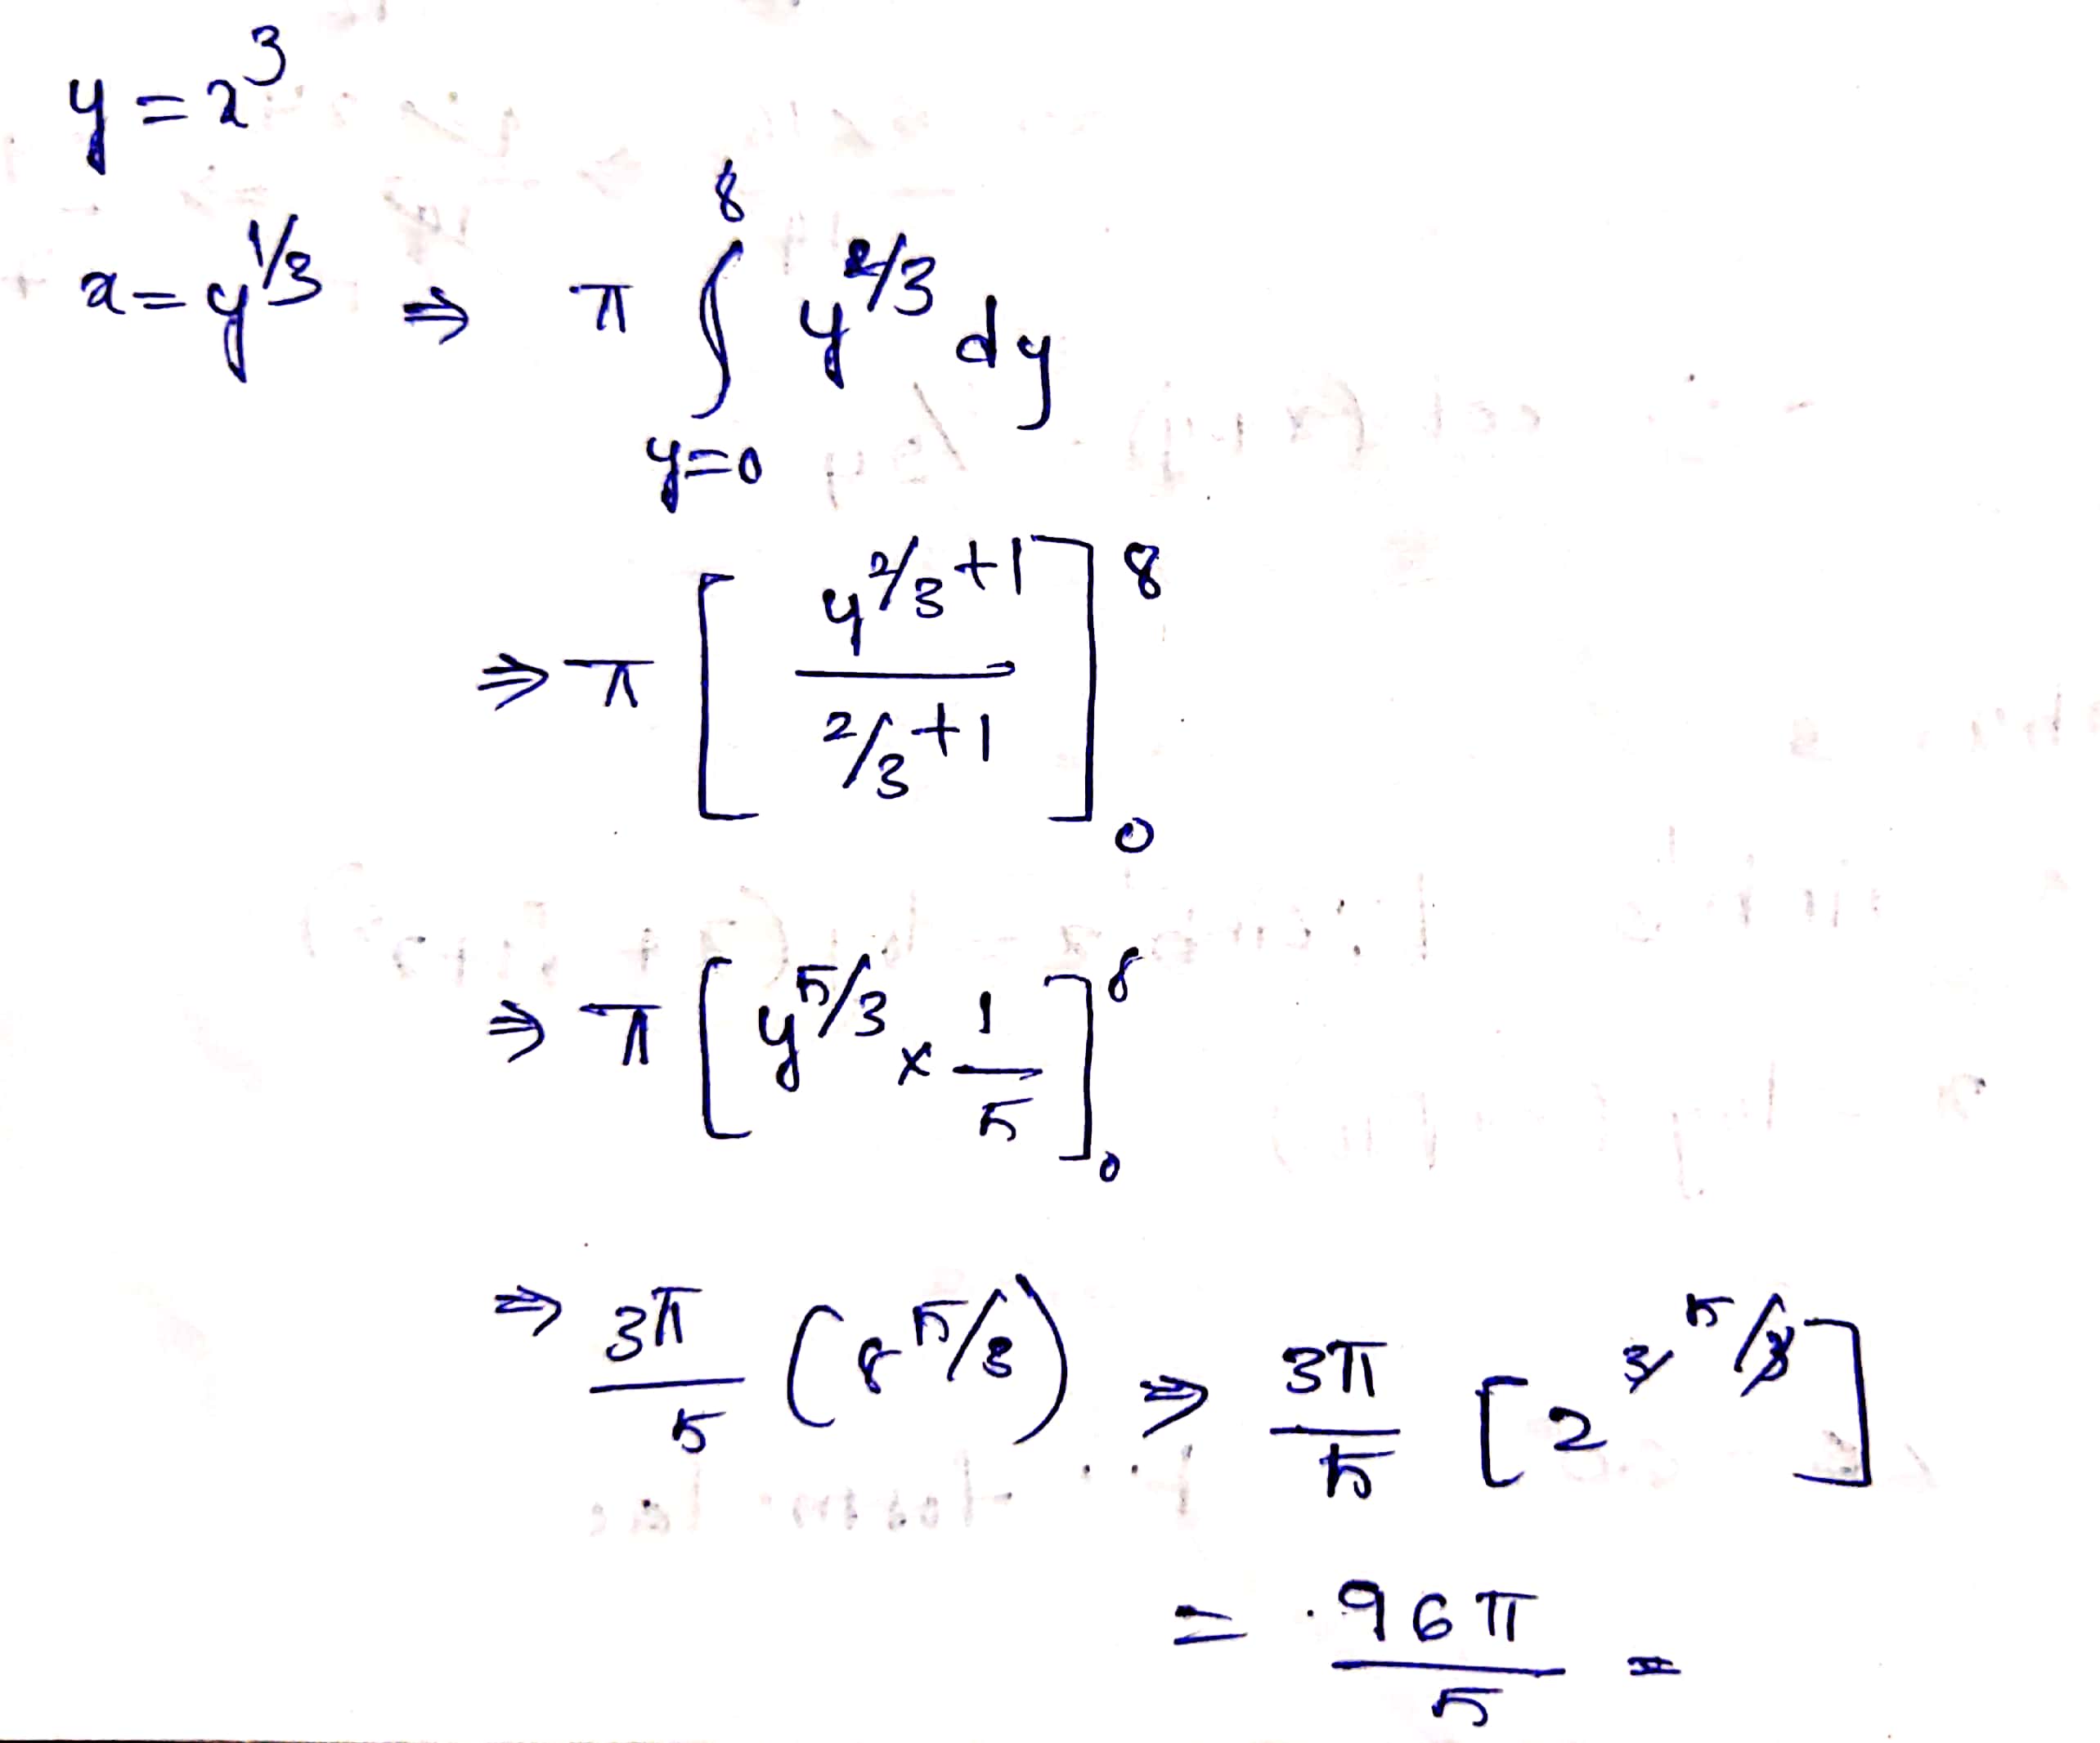 y = x^3
x = y^{1/3} ⇒ π ∫_{y=0}^{8} y^{2/3} dy
⇒ π [ \frac{y^{2/3+1}}{2/3+1} ]_0^8
⇒ π [ y^{5/3} × \frac{1}{5} ]_0^8
⇒ \frac{3π}{5} (8^{5/3}) ⇒ \frac{3π}{5} [2^{3 5/3}]
= \frac{96π}{5} =